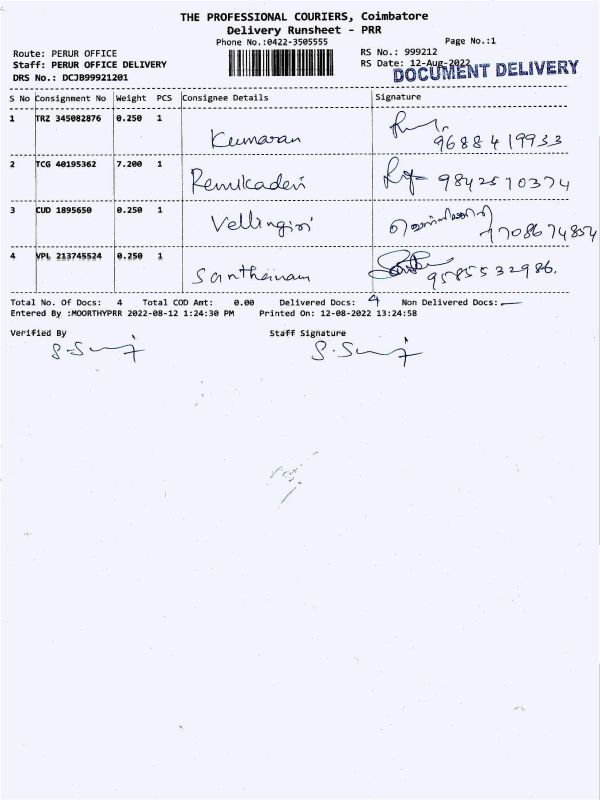 THE PROFESSIONAL COURIERS, Coimbatore
Delivery Runsheet - PRR
Phone No.:0422-3505555 Page No.:1
Route: PERUR OFFICE RS No.: 999212
Staff: PERUR OFFICE DELIVERY RS Date: 12-Aug-2022
DOCUMENT DELIVERY
DRS No.: DCJB99921201
S No Consignment No Weight PCS Consignee Details Signature
1 TRZ 345082876 0.250 1
Kumaran 9688419933
2 TCG 40195362 7.200 1
Renukadevi 9842510374
3 CUD 1895650 0.250 1
Vellingiri 7708674854
4 VPL 213745524 0.250 1
Santheinam 9585532986.
Total No. Of Docs: 4 Total COD Amt: 0.00 Delivered Docs: 4 Non Delivered Docs: —
Entered By :MOORTHYPRR 2022-08-12 1:24:30 PM Printed On: 12-08-2022 13:24:58
Verified By Staff Signature